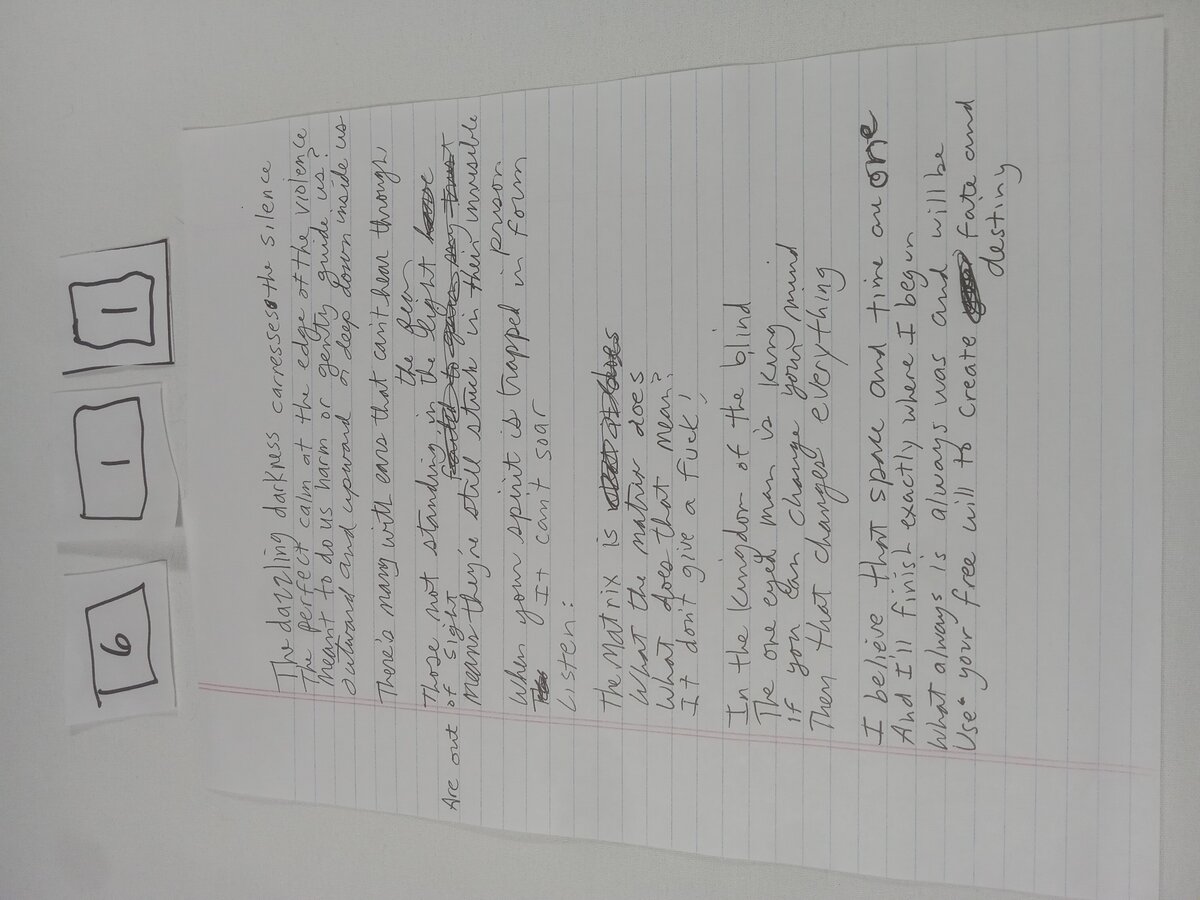 6 1 1
The dazzling darkness carresses the silence
The perfect calm at the edge of the violence
Meant to do us harm or gently guide us?
Outward and upward or deep down inside us
There's many with ears that can't hear through
the few
Those not standing in the light
Are out of sight
Means they're still stuck in their invisible
prison
When your spirit is trapped in form
It can't soar
Listen:
The Matrix is
What the matrix does
What does that mean?
It don't give a fuck!
In the Kingdom of the blind
The one eyed man is King
if you can change your mind
Then that changes everything
I believe that space and time are one
And I'll finish exactly where I begun
What always is always was and will be
Use your free will to create fate and
destiny